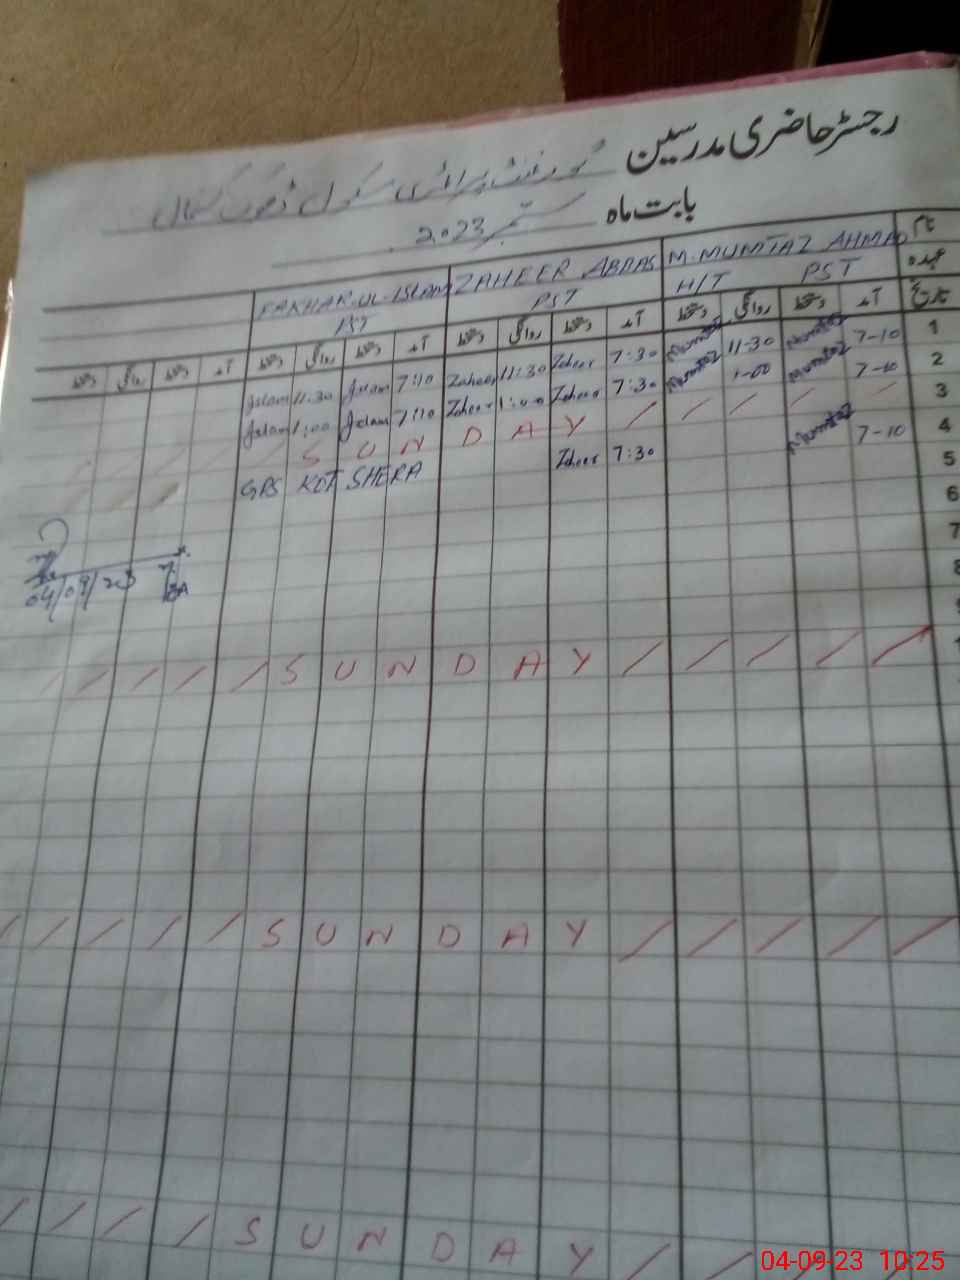 رجسٹر حاضری مدرسین گورنمنٹ پرائمری سکول ڈھوک
بابت ماہ ستمبر 2023
نام M. MUMTAZ AHMAD ZAHEER ABBAS FAKHAR-UL-ISLAM
عہدہ H/T PST PST PST
تاریخ آمد دستخط روانگی دستخط آمد دستخط روانگی دستخط آمد دستخط روانگی دستخط آمد دستخط روانگی دستخط
1 7-10 Mumtaz 11-30 Mumtaz 7:30 Zaheer 11:30 Zaheer 7:10 Islam 11:30 Islam
2 7-10 Mumtaz 1-00 Mumtaz 7:30 Zaheer 1:00 Zaheer 7:10 Islam 1:00 Islam
3 SUNDAY
4 7-10 Mumtaz 7:30 Zaheer GPS KOT SHERA
5
6
7
8
9
04/09/23
SUNDAY
SUNDAY
SUNDAY
04-09-23 10:25